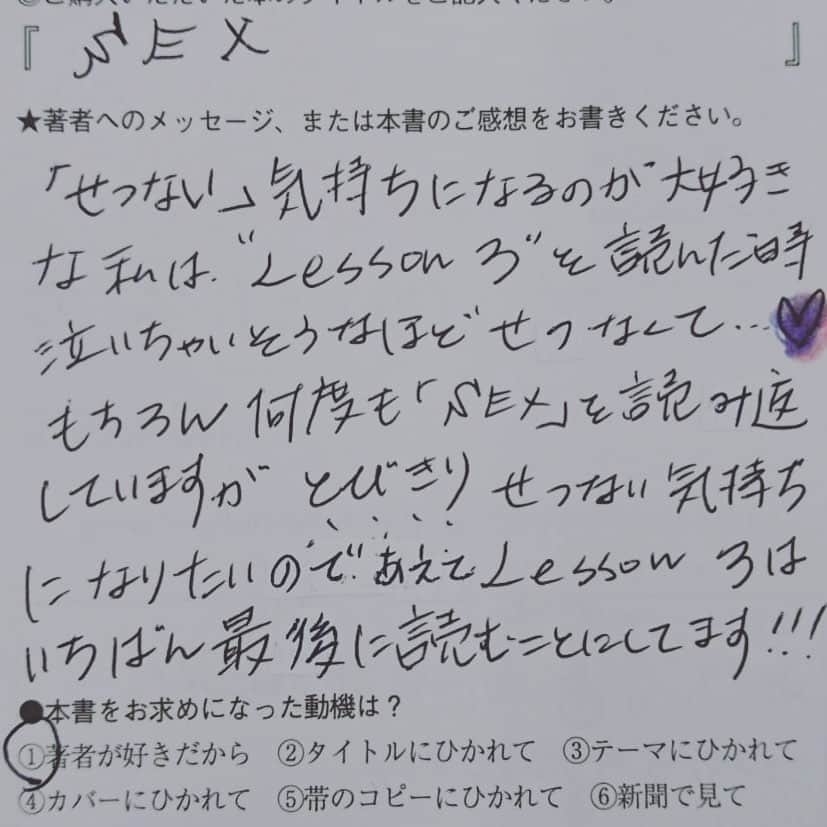 『 SEX 』
★著者へのメッセージ、または本書のご感想をお書きください。
「せつない」気持ちになるのが大好き
な私は、“Lesson 3”を読んだ時
泣いちゃいそうなほどせつなくて…
もちろん何度も「SEX」を読み返
していますが とびきり せつない気持ち
になりたいので あえてLesson 3は
いちばん最後に読むことにしてます!!!
●本書をお求めになった動機は？
①著者が好きだから ②タイトルにひかれて ③テーマにひかれて
④カバーにひかれて ⑤帯のコピーにひかれて ⑥新聞で見て